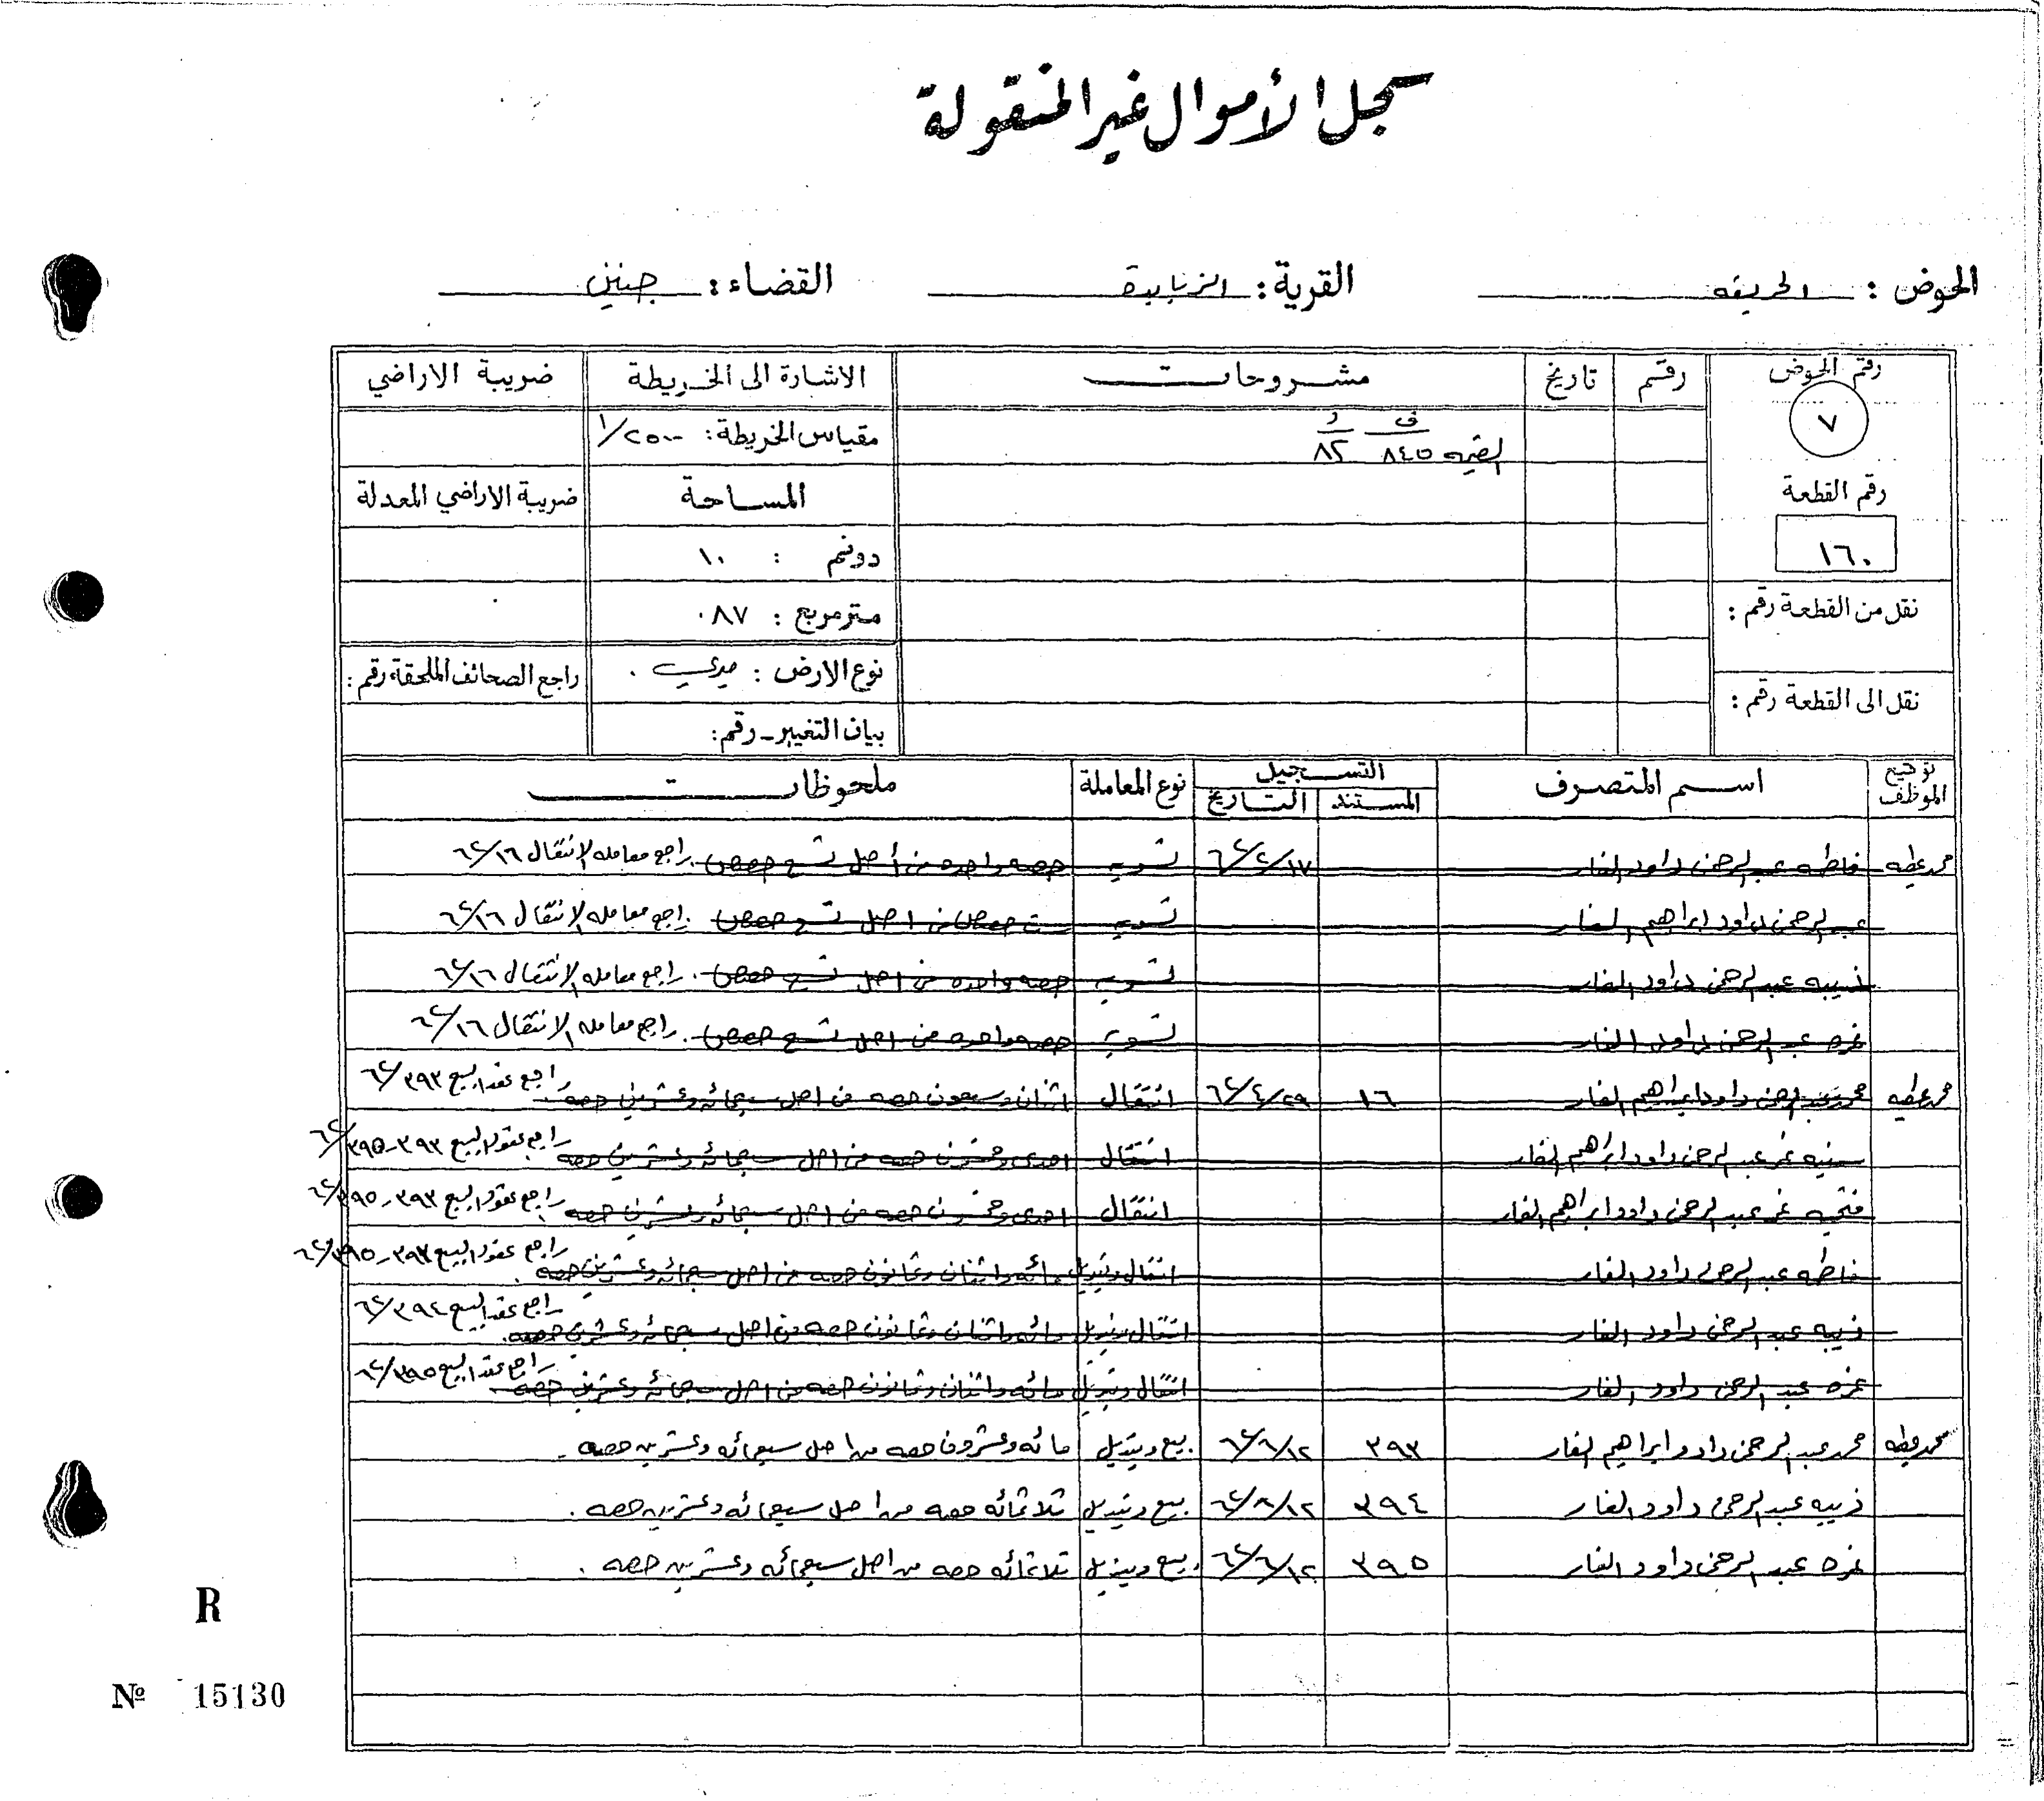 سجل الأموال غير المنقولة
الحوض : الحريقه القرية : الزبابدة القضاء : جنين
رقم الحوض رقم تاريخ مشروحات الاشارة الى الخريطة ضريبة الاراضي
٧ ف د مقياس الخريطة : ١/٢٥٠٠
القيمه ٨٤٥ ٨٢
رقم القطعة المساحة ضريبة الاراضي المعدلة
١٦٠ دونم : ١٠
نقل من القطعة رقم : مترمربع : ٠٨٧
نوع الارض : ميري . راجع الصحائف الملحقة رقم :
نقل الى القطعة رقم : بيان التغيير - رقم :
توقيع الموظف اسم المتصرف التسجيل نوع المعاملة ملحوظات
المستند التاريخ
محمد عطيه فاطمه عبد الرحمن داود الفار ٦٤/٢/١٧ تسويه حصه واحده من أصل تسع حصص . راجع معامله الانتقال ٦٤/١٦
عبد الرحمن داود ابراهيم الفار تسويه ست حصص من اصل تسع حصص . راجع معامله الانتقال ٦٤/١٦
ذيبه عبد الرحمن داود الفار تسويه حصه واحده من اصل تسع حصص . راجع معامله الانتقال ٦٤/١٦
عبد الرحمن داود الفار تسويه حصه واحده من اصل تسع حصص . راجع معامله الانتقال ٦٤/١٦
محمد عطيه محمد عبد الرحمن داود ابراهيم الفار ١٦ ٦٤/٤/٢٩ انتقال اثنان وسبعون حصه من اصل سبعمائه وعشرين حصه . راجع عقد البيع ٦٤/٣٩٣
سنيه نمر عبد الرحمن داود ابراهيم الفار انتقال احدى وخمسون حصه من اصل سبعمائه وعشرين حصه راجع عقود البيع ٣٩٣-٦٤/٣٩٥
فتحيه نمر عبد الرحمن داود ابراهيم الفار انتقال احدى وخمسون حصه من اصل سبعمائه وعشرين حصه . راجع عقود البيع ٣٩٣-٦٤/٣٩٥
فاطمه عبد الرحمن داود الفار انتقال وتنزيل مائه واثنان وثمانون حصه من اصل سبعمائه وعشرين حصه . راجع عقود البيع ٣٩٣-٦٤/٣٩٥
ذيبه عبد الرحمن داود الفار انتقال وتنزيل مائه واثنان وثمانون حصه من اصل سبعمائه وعشرين حصه . راجع عقد البيع ٦٤/٣٩٤
عبد الرحمن داود الفار انتقال وتنزيل مائه واثنان وثمانون حصه من اصل سبعمائه وعشرين حصه . راجع عقد البيع ٦٤/٣٩٥
محمد عطيه محمد عبد الرحمن داود ابراهيم الفار ٣٩٣ ٦٤/٦/١٢ بيع وتنزيل مائه وعشرون حصه من اصل سبعمائه وعشرين حصه .
ذيبه عبد الرحمن داود الفار ٣٩٤ بيع وتنزيل ثلاثمائه حصه من اصل سبعمائه وعشرين حصه .
عبد الرحمن داود الفار ٣٩٥ ٦٤/٦/١٢ بيع وتنزيل ثلاثمائه حصه من اصل سبعمائه وعشرين حصه .
R
№ 15130